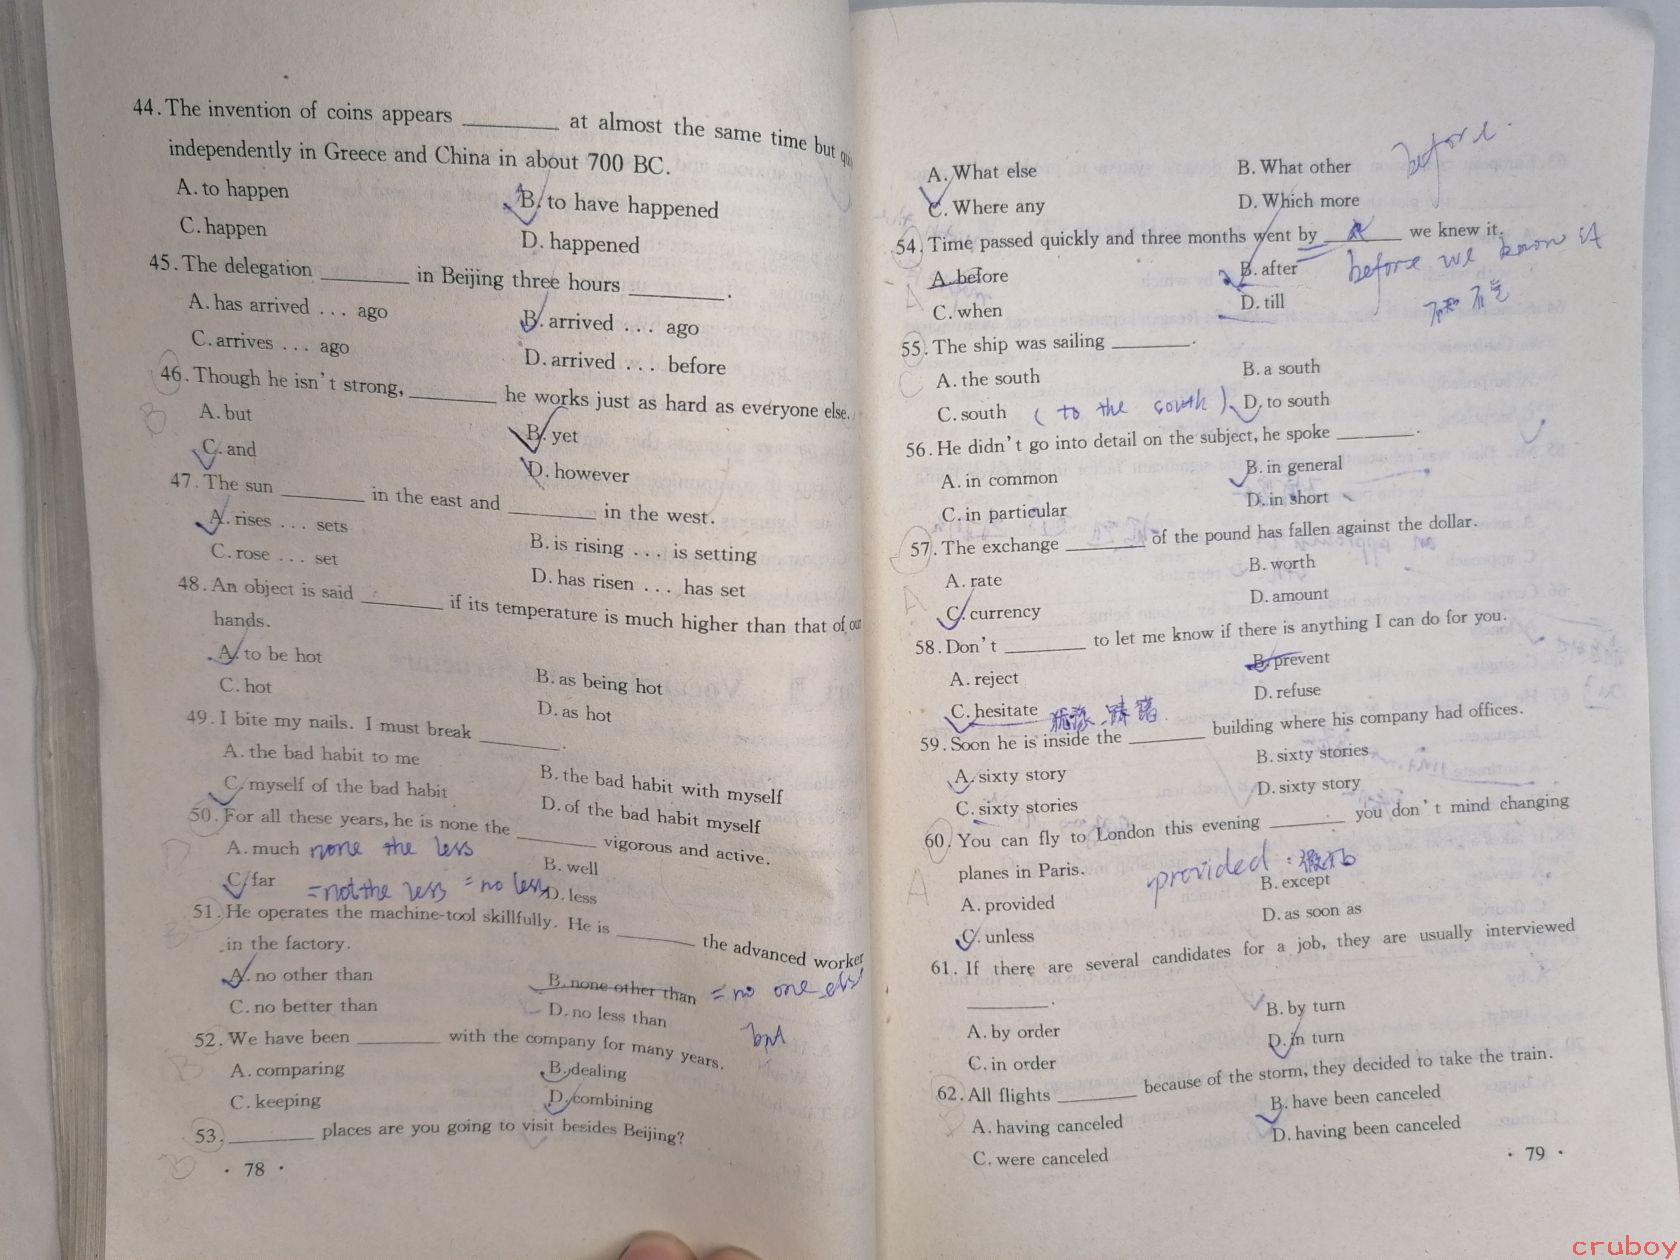 44. The invention of coins appears ________ at almost the same time but
independently in Greece and China in about 700 BC.
A. to happen
B. to have happened
C. happen
D. happened
45. The delegation ________ in Beijing three hours ________.
A. has arrived ... ago
B. arrived ... ago
C. arrives ... ago
D. arrived ... before
46. Though he isn't strong, ________ he works just as hard as everyone else.
B
A. but
B. yet
C. and
D. however
47. The sun ________ in the east and ________ in the west.
A. rises ... sets
B. is rising ... is setting
C. rose ... set
D. has risen ... has set
48. An object is said ________ if its temperature is much higher than that of our
hands.
A. to be hot
B. as being hot
C. hot
D. as hot
49. I bite my nails. I must break ________.
A. the bad habit to me
B. the bad habit with myself
C. myself of the bad habit
D. of the bad habit myself
50. For all these years, he is none the ________ vigorous and active.
D
A. much none the less
B. well
C. far = not the less = no less
D. less
51. He operates the machine-tool skillfully. He is ________ the advanced worker
B
in the factory.
A. no other than
B. none other than = no one else
C. no better than
D. no less than
but
52. We have been ________ with the company for many years.
B
A. comparing
B. dealing
C. keeping
D. combining
53. ________ places are you going to visit besides Beijing?
B
· 78 ·
A. What else
B. What other
before
C. Where any
D. Which more
54. Time passed quickly and three months went by ________ we knew it.
A
A. before
B. after
before we know it
C. when
D. till
不知不觉
55. The ship was sailing ________.
C
A. the south
B. a south
C. south (to the south)
D. to south
56. He didn't go into detail on the subject, he spoke ________.
A. in common
B. in general
C. in particular
D. in short
57. The exchange ________ of the pound has fallen against the dollar.
A
A. rate
B. worth
C. currency
D. amount
58. Don't ________ to let me know if there is anything I can do for you.
A. reject
B. prevent
C. hesitate 犹豫、踌躇
D. refuse
59. Soon he is inside the ________ building where his company had offices.
A. sixty story
B. sixty stories
C. sixty stories
D. sixty story
60. You can fly to London this evening ________ you don't mind changing
A
planes in Paris.
provided:
A. provided
B. except
C. unless
D. as soon as
61. If there are several candidates for a job, they are usually interviewed
________.
A. by order
B. by turn
C. in order
D. in turn
62. All flights ________ because of the storm, they decided to take the train.
A. having canceled
B. have been canceled
C. were canceled
D. having been canceled
· 79 ·
cruboy